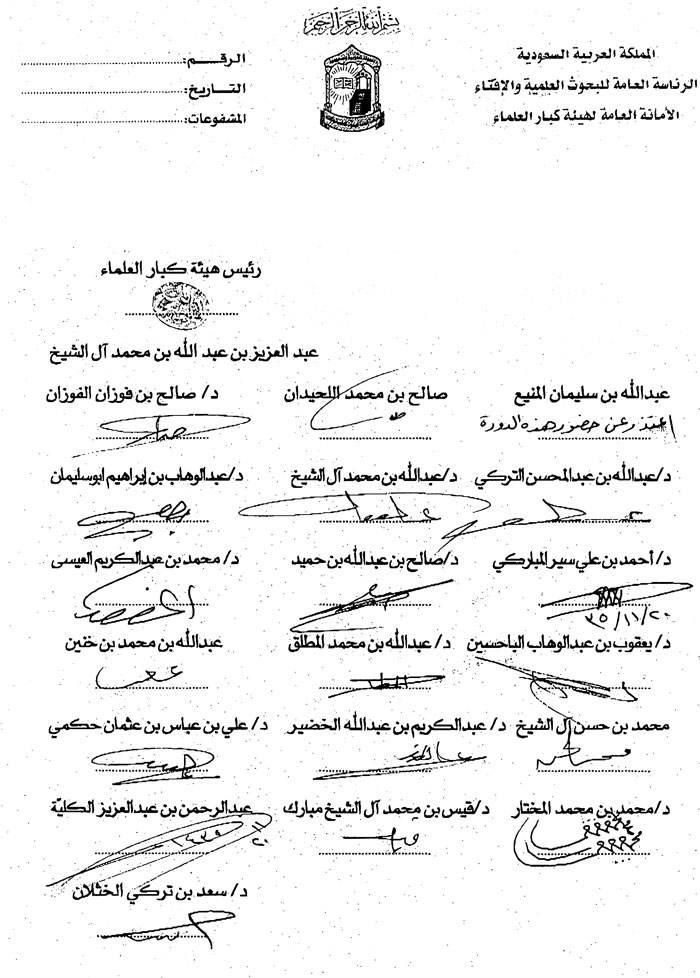 بسم الله الرحمن الرحيم
المملكة العربية السعودية
الرئاسة العامة للبحوث العلمية والإفتاء
الأمانة العامة لهيئة كبار العلماء
الرقـــم:
التـاريـخ:
المشفوعات:
رئيس هيئة كبار العلماء
عبد العزيز بن عبد الله بن محمد آل الشيخ
عبدالله بن سليمان المنيع صالح بن محمد اللحيدان د/ صالح بن فوزان الفوزان
اعتذر عن حضور هذه الدورة
د/عبدالله بن عبدالمحسن التركي د/عبدالله بن محمد آل الشيخ د/عبدالوهاب بن إبراهيم ابوسليمان
د/أحمد بن علي سير المباركي د/صالح بن عبدالله بن حميد د/ محمد بن عبدالكريم العيسى
٣٥/١١/٢٠
د/ يعقوب بن عبدالوهاب الباحسين د/ عبدالله بن محمد المطلق عبدالله بن محمد بن خنين
محمد بن حسن آل الشيخ د/ عبدالكريم بن عبدالله الخضير د/ علي بن عباس بن عثمان حكمي
د/محمد بن محمد المختار د/قيس بن محمد آل الشيخ مبارك عبدالرحمن بن عبدالعزيز الكليّة
د/ سعد بن تركي الخثلان